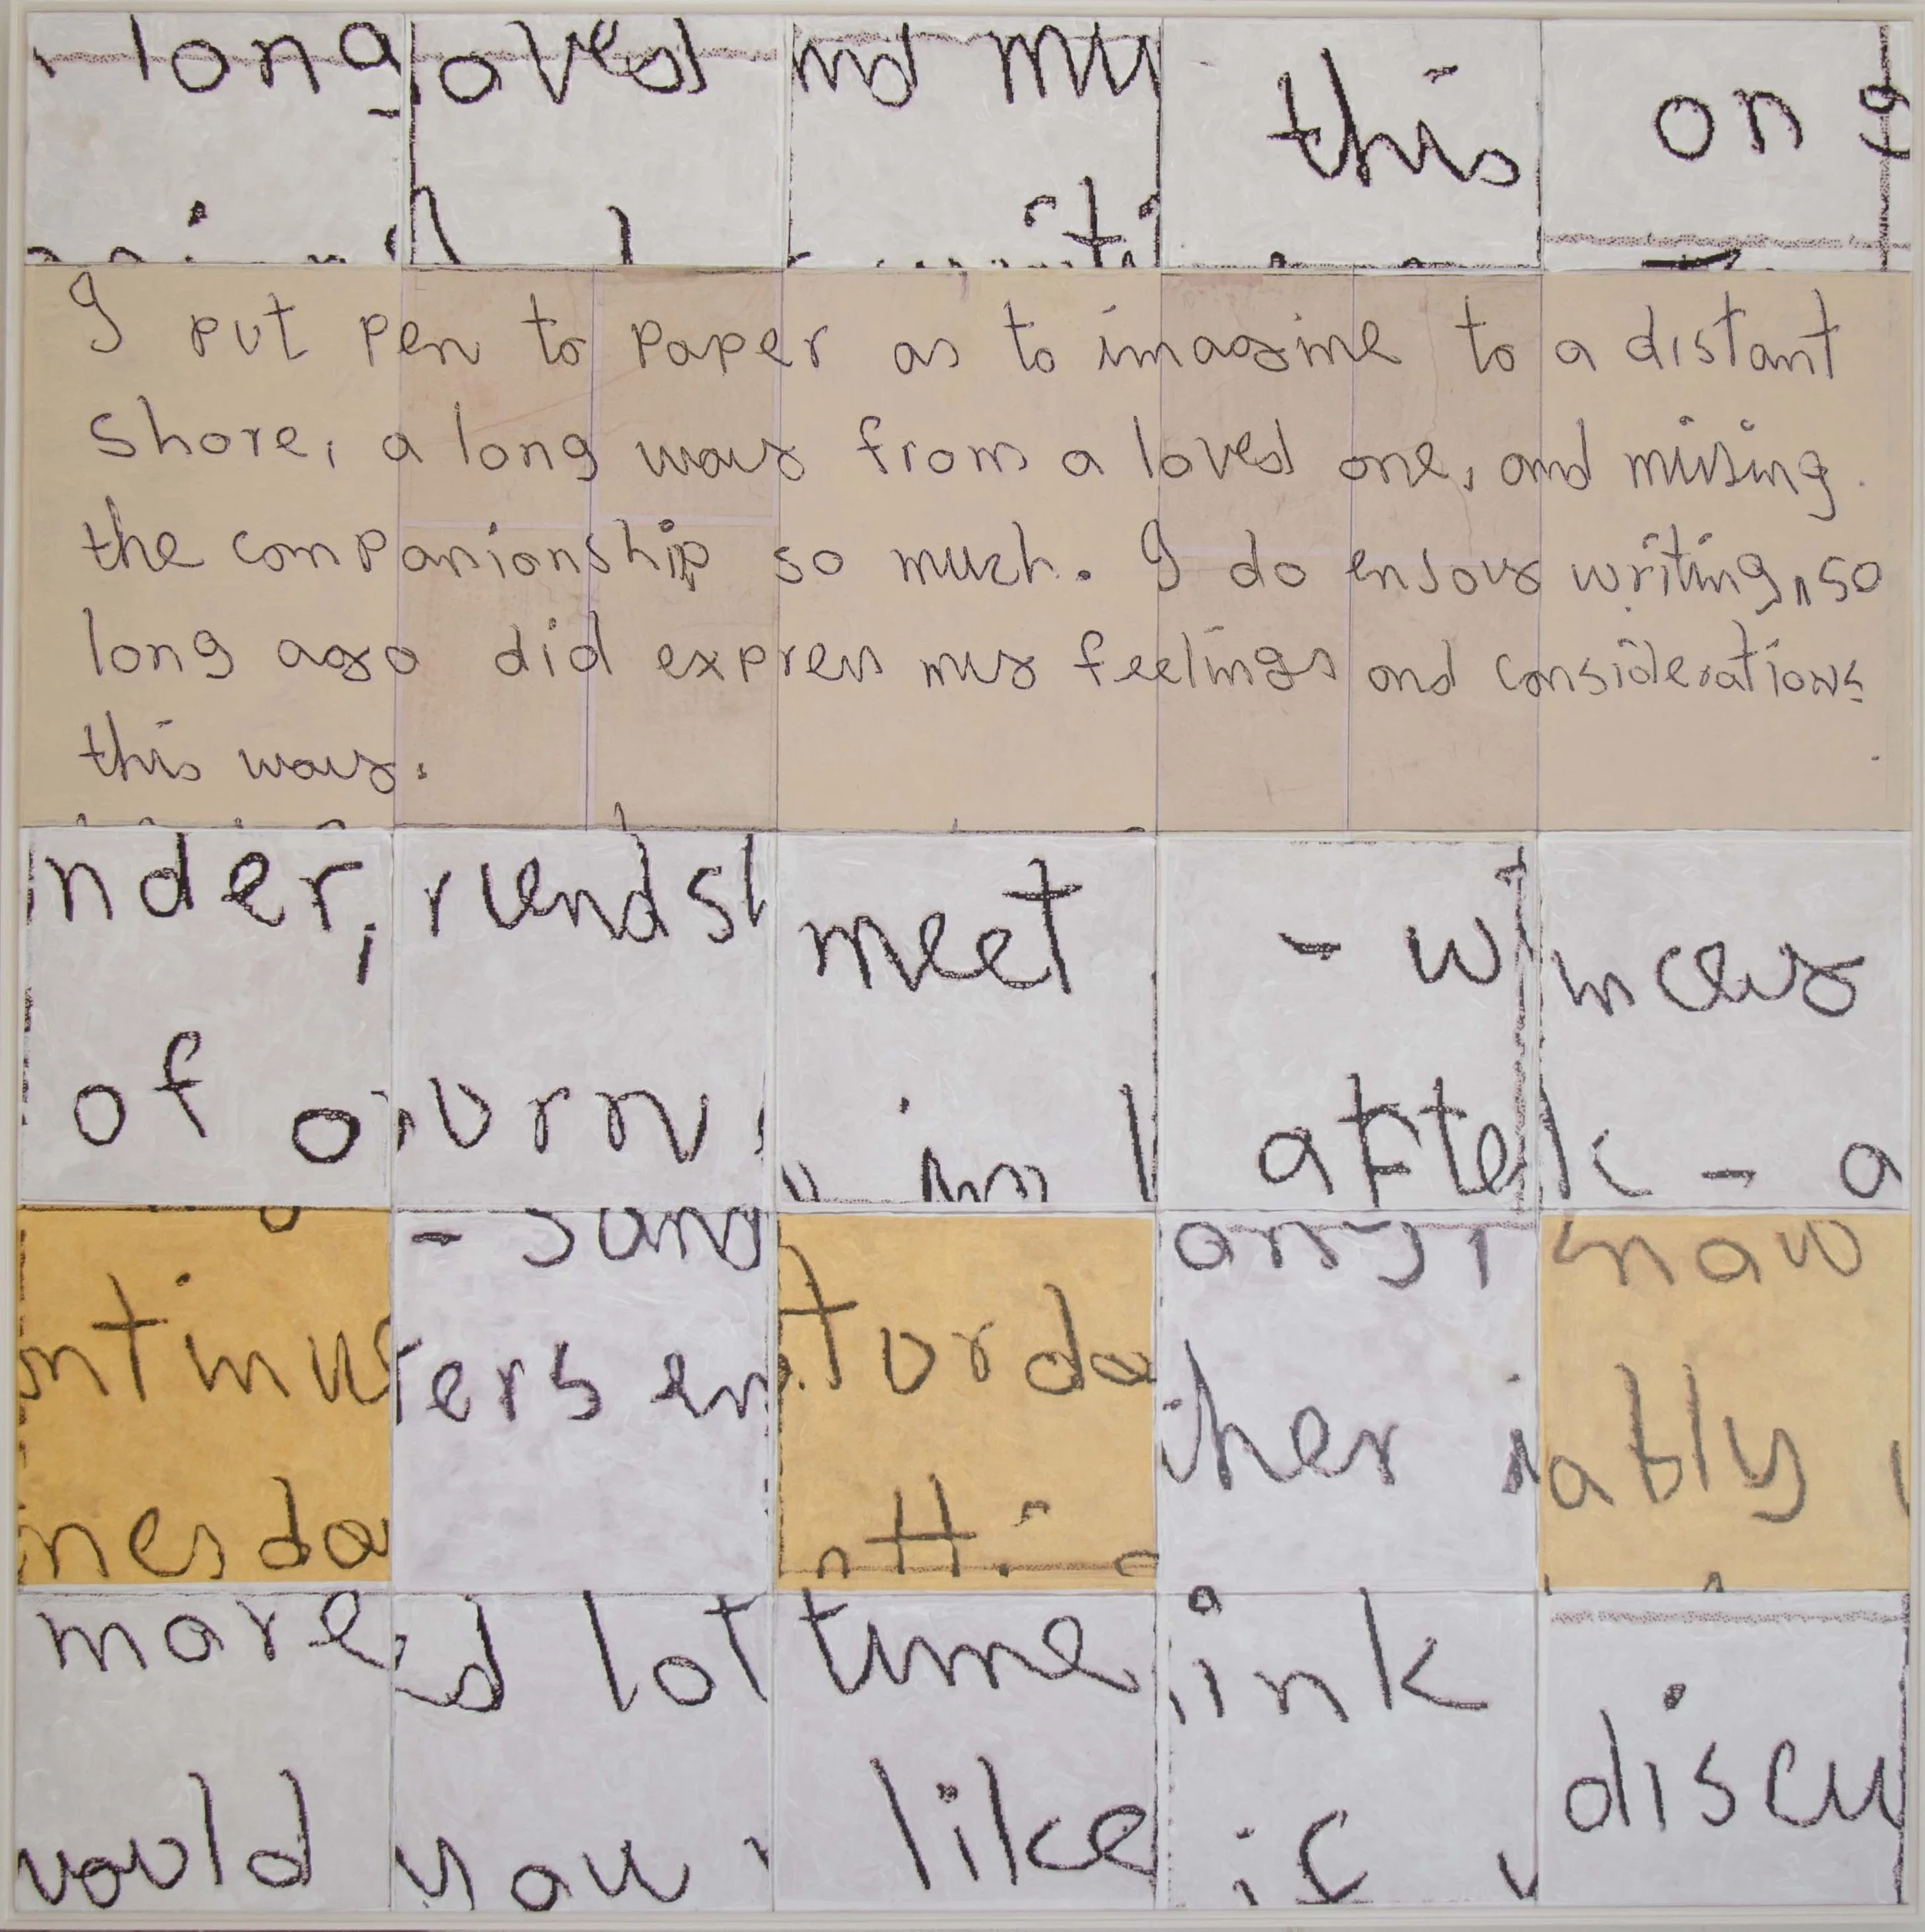 long oved nd my this on
I put pen to paper as to imagine to a distant
shore, a long way from a loved one, and missing
the companionship so much. I do enjoy writing, so
long ago did express my feelings and considerations
this way.
nder, riendsh meet - w incey
of o urn in l afte k - a
ntinue - sang turda any know
nesda ers en tti her ably
more d lot time ink discu
would you like if